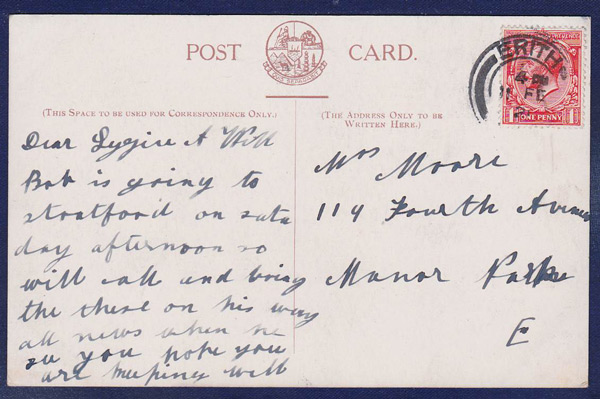 POST CARD.
(THIS SPACE TO BE USED FOR CORRESPONDENCE ONLY.)
(THE ADDRESS ONLY TO BE
WRITTEN HERE.)
ERITH
4-PM
11 FE
ONE PENNY
Dear A Will
Bob is going to
stratford on satu
day afternoon so
will call and bring
the these on his way
all news when he
see you hope you
are keeping well
Mrs Moore
114 Fourth Avenue
Manor Park
E